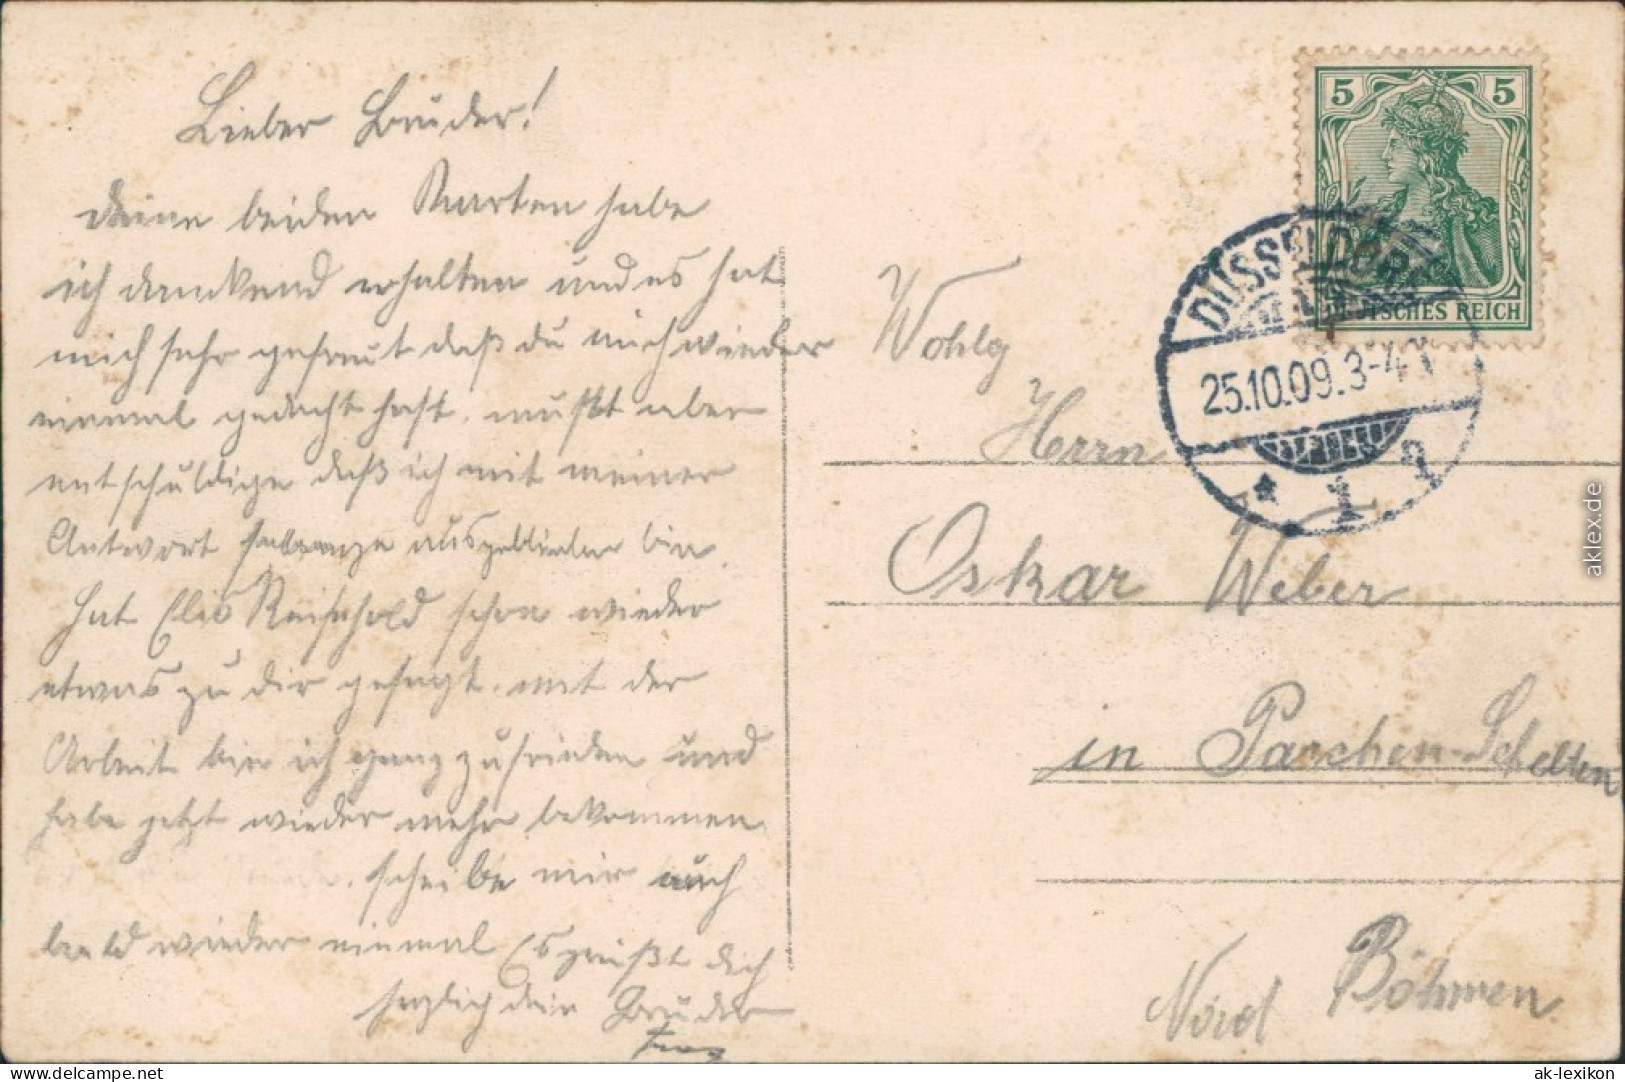 Lieber Bruder!
Deine beiden Karten habe
ich dankend erhalten und es hat
mich sehr gefreut daß du mich wieder
einmal gedacht hast. mußt aber
entschuldige daß ich mit meiner
Antwort so lange ausgeblieben bin.
Hat Reinhold schon wieder
etwas zu dir gesagt. mit der
Arbeit bin ich ganz zufrieden und
habe jetzt wieder mehr bekommen
schreibe mir auch
bald wieder einmal Es grüßt dich
herzlich dein Bruder
5 5
DEUTSCHES REICH
DÜSSELDORF
25.10.09.3-4
* 1
Wohlg
Herrn
Oskar Weber
in Parchen-Schelten
Nord Böhmen
aklex.de
delcampe.net
ak-lexikon